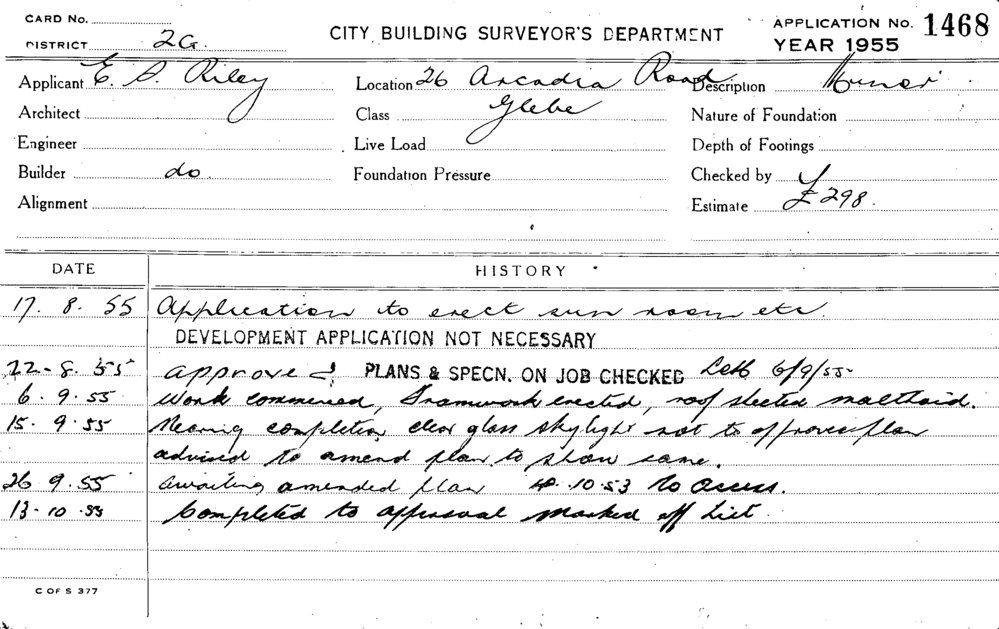 CARD No.
DISTRICT 2G.
CITY BUILDING SURVEYOR'S DEPARTMENT
APPLICATION No. 1468
YEAR 1955
Applicant E. S. Riley
Location 26 Arcadia Road
Description Minor
Architect
Class Glebe
Nature of Foundation
Engineer
Live Load
Depth of Footings
Builder do
Foundation Pressure
Checked by
Alignment
Estimate £298.
DATE
HISTORY
17. 8. 55 Application to erect sun room etc.
DEVELOPMENT APPLICATION NOT NECESSARY
22-8.55 approved PLANS & SPECN. ON JOB CHECKED 6/9/55
6. 9. 55 Work commenced, Framework erected, roof sheeted malthoid.
15. 9. 55 Nearing completion clear glass skylight not to approved plan
advised to amend plan to show same.
26 9. 55 awaiting amended plan 10.53
13-10.55 Completed to approval marked off List
C OF S 377